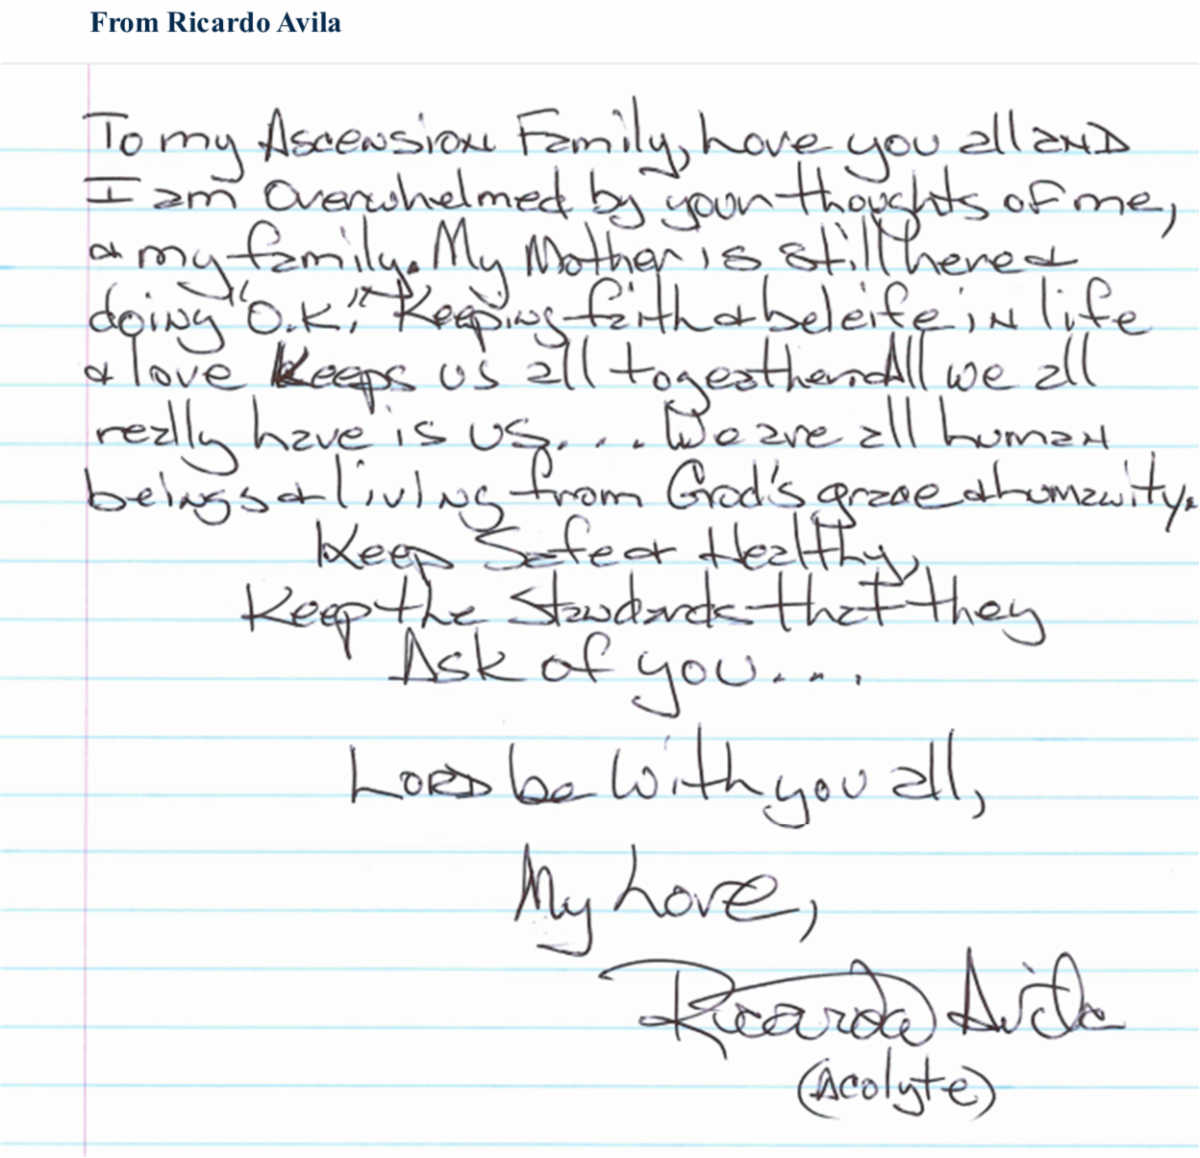 From Ricardo Avila
To my Ascension Family, Love you all and
I am Overwhelmed by your thoughts of me,
& my family. My Mother is still here &
doing "O.K." Keeping faith & beleife in life
& love Keeps us all togeather. All we all
really have is us.... We are all human
beings & living from God's grace & humanity.
Keep Safe & Healthy,
Keep the Standards that they
Ask of you....
Lord be with you all,
My Love,
Ricardo Avila
(Acolyte)